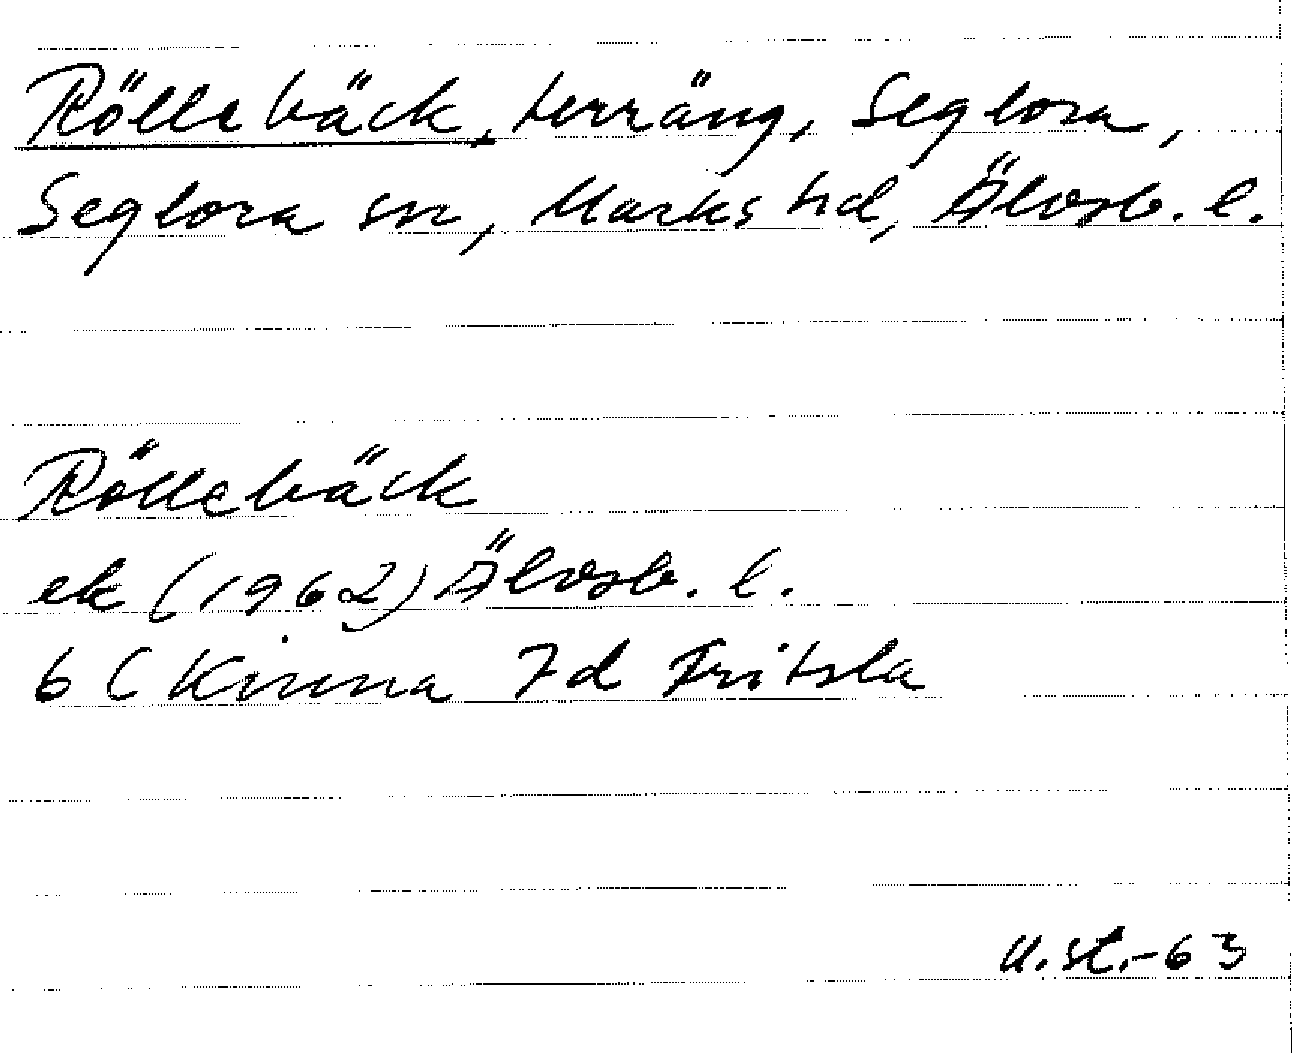 Röllebäck, terräng, Seglora,
Seglora sn, Marks hd, Älvsb. l.
Röllebäck
ek (1962) Älvsb. l.
6 C Kinna 7d Fritsla
U. St.-63